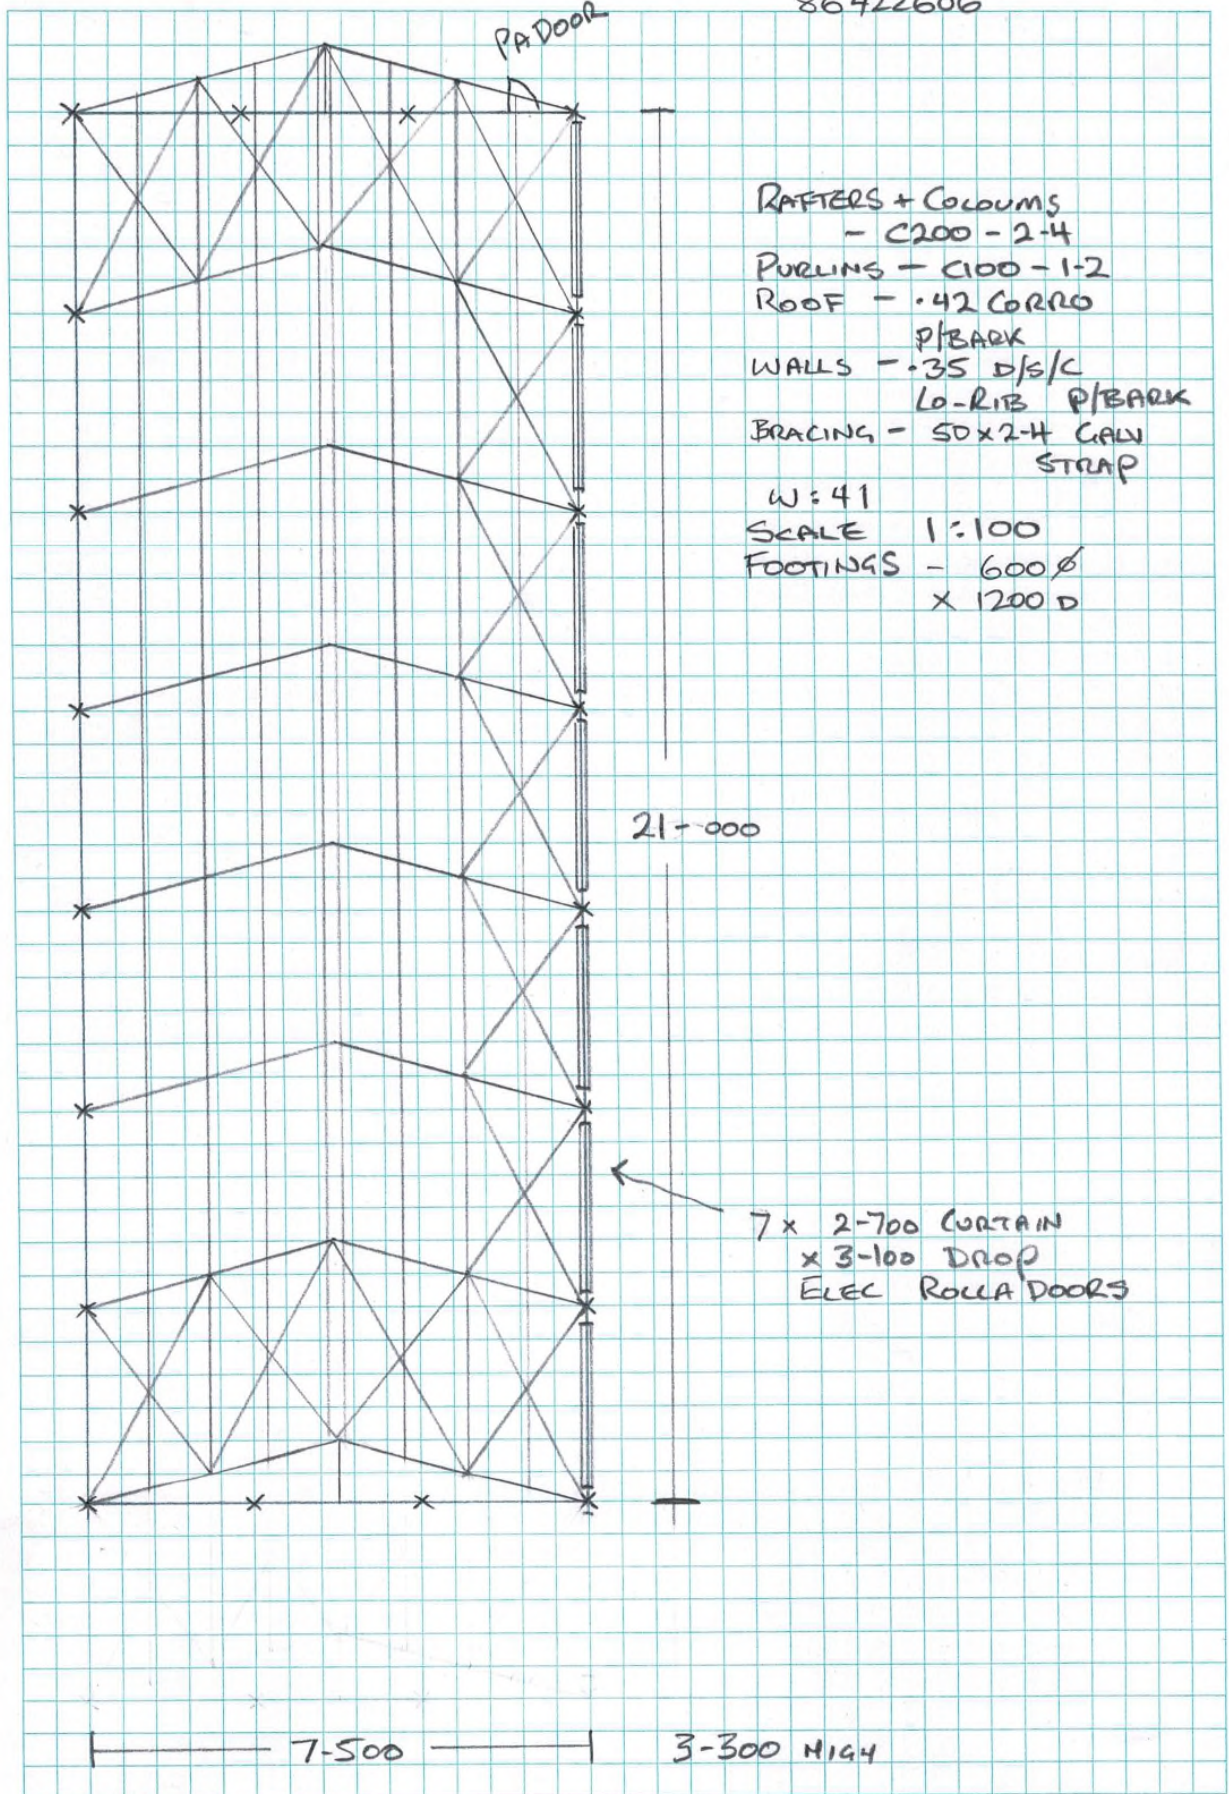 86422606
PA DOOR
RAFTERS + COLOUMS
- C200 - 2-4
PURLINS - C100 - 1-2
ROOF - .42 CORRO
P/BARK
WALLS - .35 D/S/C
LO-RIB P/BARK
BRACING - 50x2-4 GALV
STRAP
W:41
SCALE 1:100
FOOTINGS - 600Ø
x 1200 D
21-000
7x 2-700 CURTAIN
x 3-100 DROP
ELEC ROLLA DOORS
7-500
3-300 HIGH